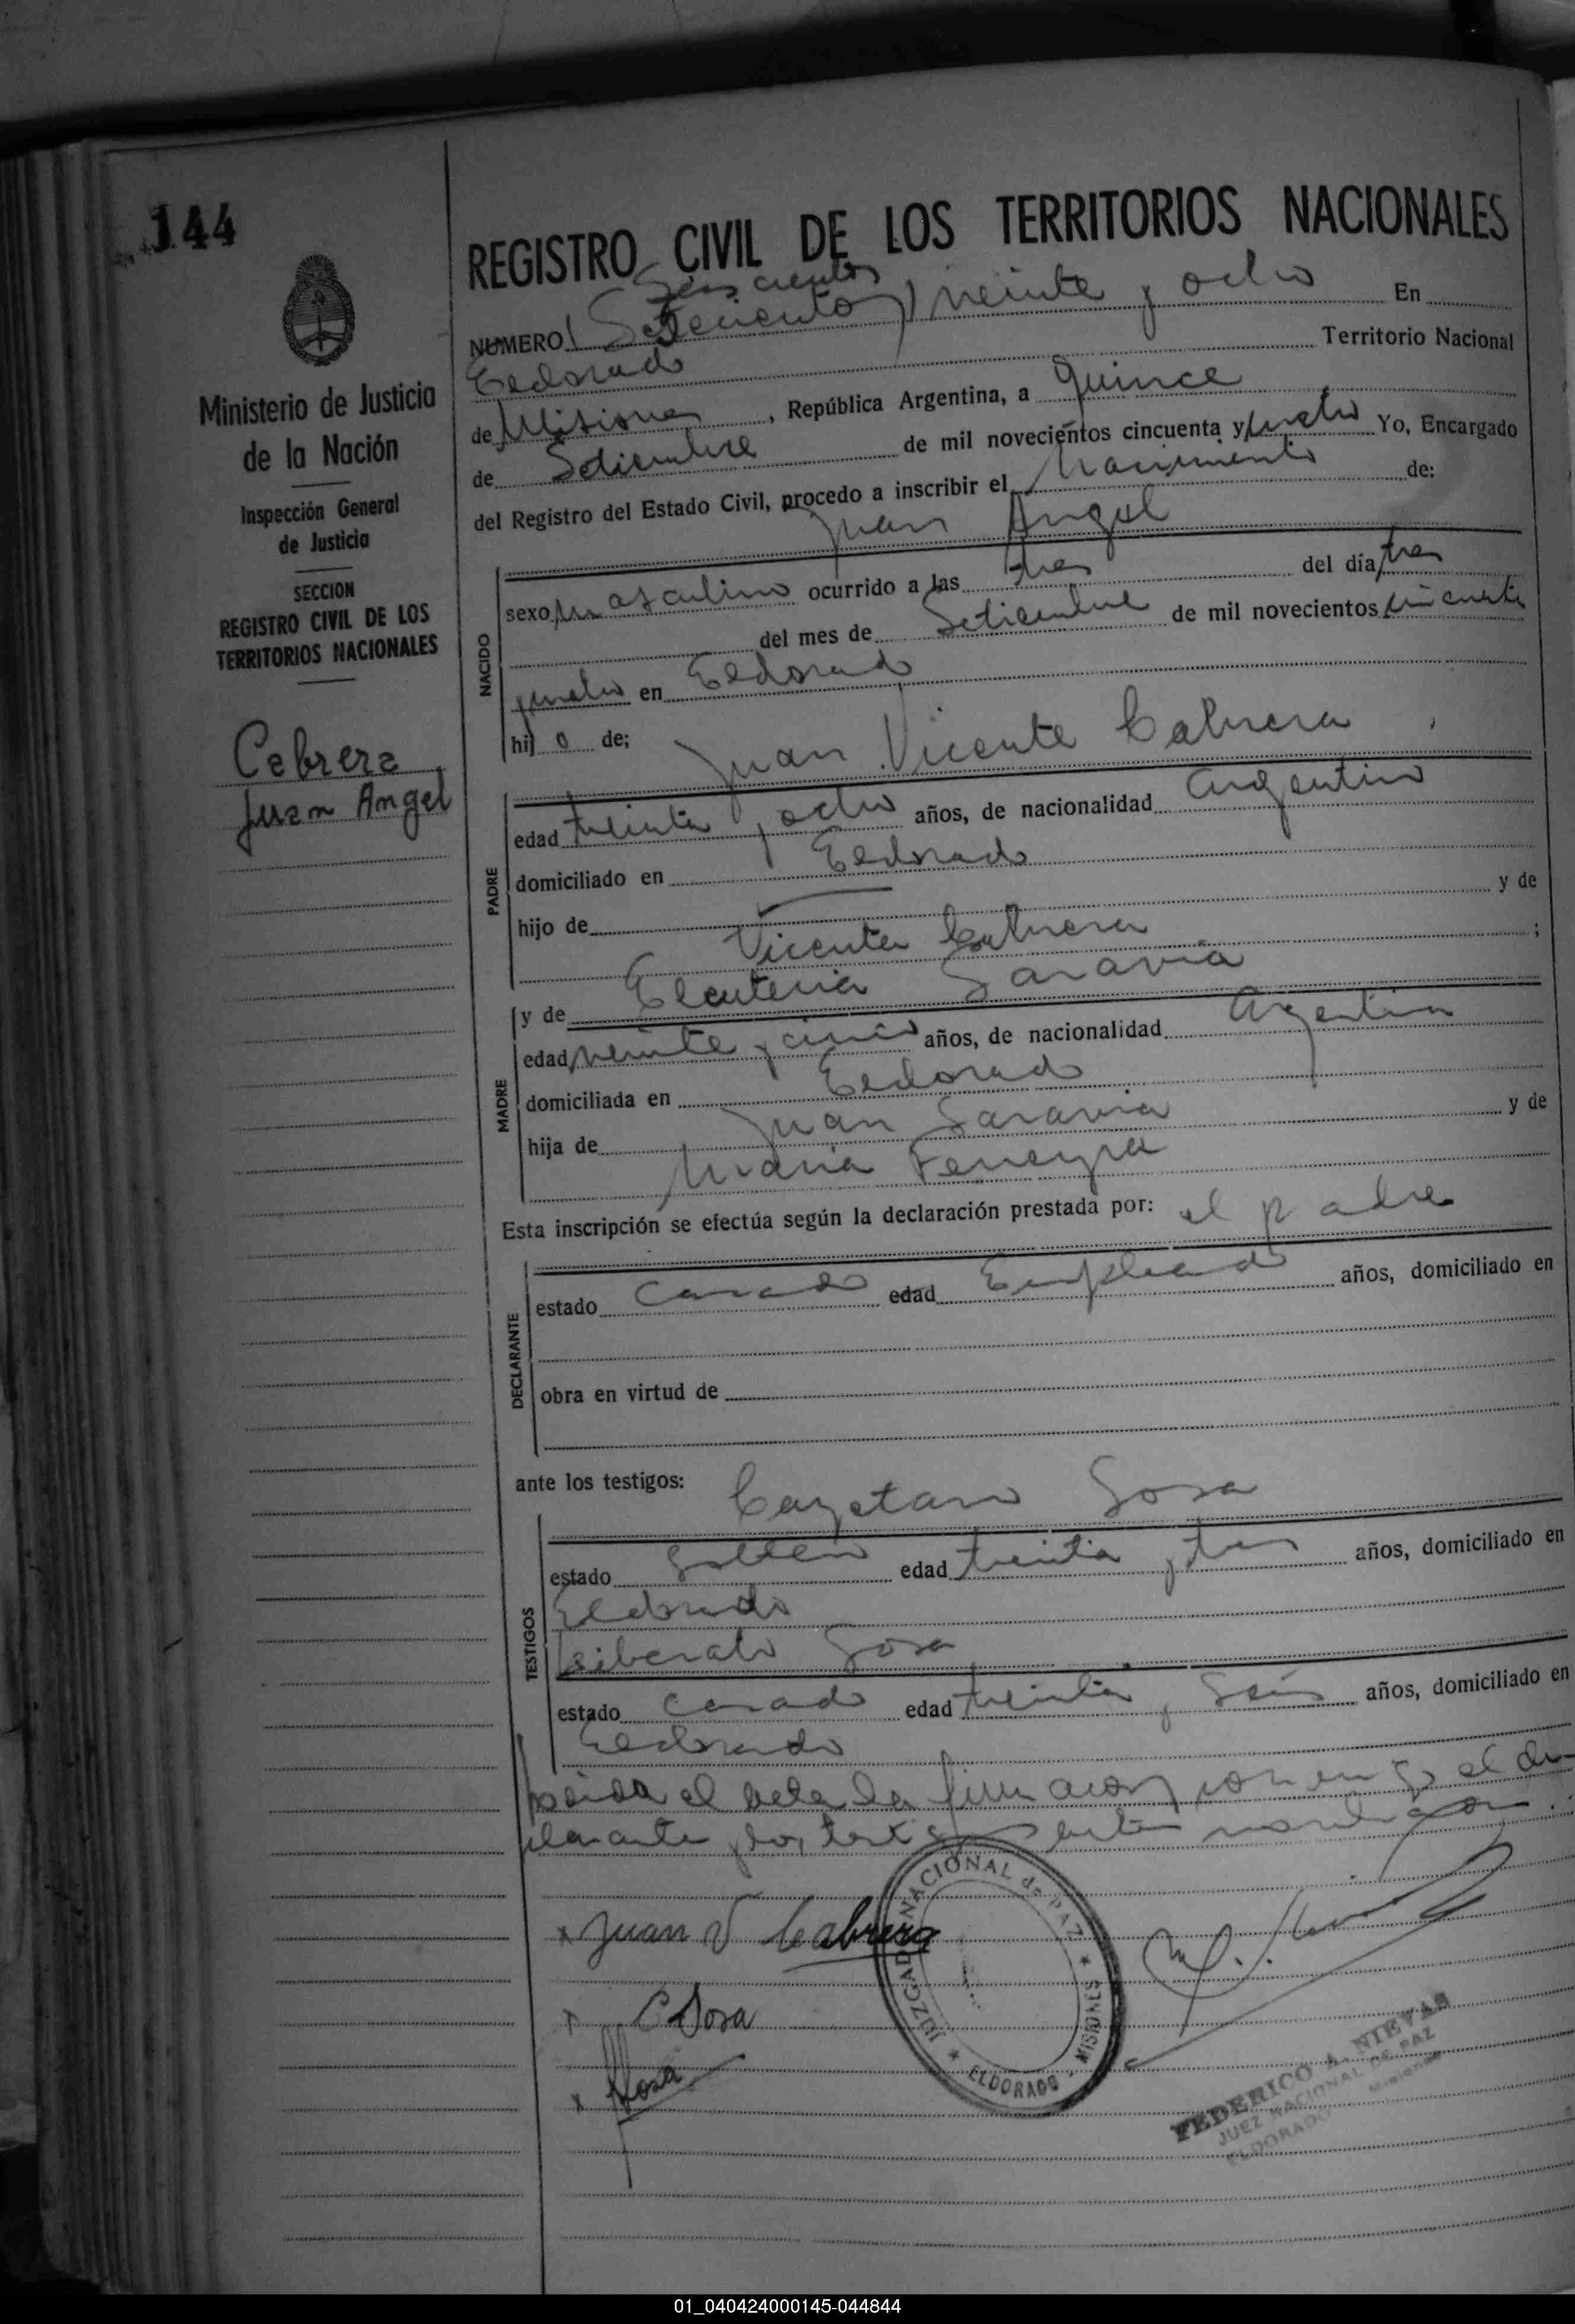 144
Ministerio de Justicia
de la Nación
Inspección General
de Justicia
SECCION
REGISTRO CIVIL DE LOS
TERRITORIOS NACIONALES
Cabrera
Juan Angel
REGISTRO CIVIL DE LOS TERRITORIOS NACIONALES
Seiscientos
NUMERO (Seteciento) veinte y ocho En
Eldorado Territorio Nacional
de Misiones, República Argentina, a quince
de Setiembre de mil novecientos cincuenta y cuatro Yo, Encargado
del Registro del Estado Civil, procedo a inscribir el nacimiento de:
Juan Angel
NACIDO
sexo masculino ocurrido a las tres del día tres
del mes de Setiembre de mil novecientos cincuenta
y cuatro en Eldorado
hijo de; Juan Vicente Cabrera
PADRE
edad treinta y ocho años, de nacionalidad argentino
domiciliado en Eldorado
hijo de y de
Vicenta Cabrera;
y de Eleuteria Saravia
MADRE
edad veinte y cinco años, de nacionalidad Argentina
domiciliada en Eldorado
hija de Juan Saravia y de
Maria Ferreyra
Esta inscripción se efectúa según la declaración prestada por: el padre
DECLARANTE
estado casado edad Empleado años, domiciliado en
obra en virtud de
ante los testigos: Cayetano Sosa
TESTIGOS
estado soltero edad treinta y tres años, domiciliado en
Eldorado
Liberato Sosa
estado casado edad treinta y seis años, domiciliado en
Eldorado
el acta la el de-
clarante y los testigos
x Juan V Cabrera
x C Sosa
x Sosa
JUZGADO NACIONAL de PAZ
ELDORADO - MISIONES
FEDERICO A. NIEVAS
JUEZ NACIONAL DE PAZ
ELDORADO - Misiones
01_040424000145-044844